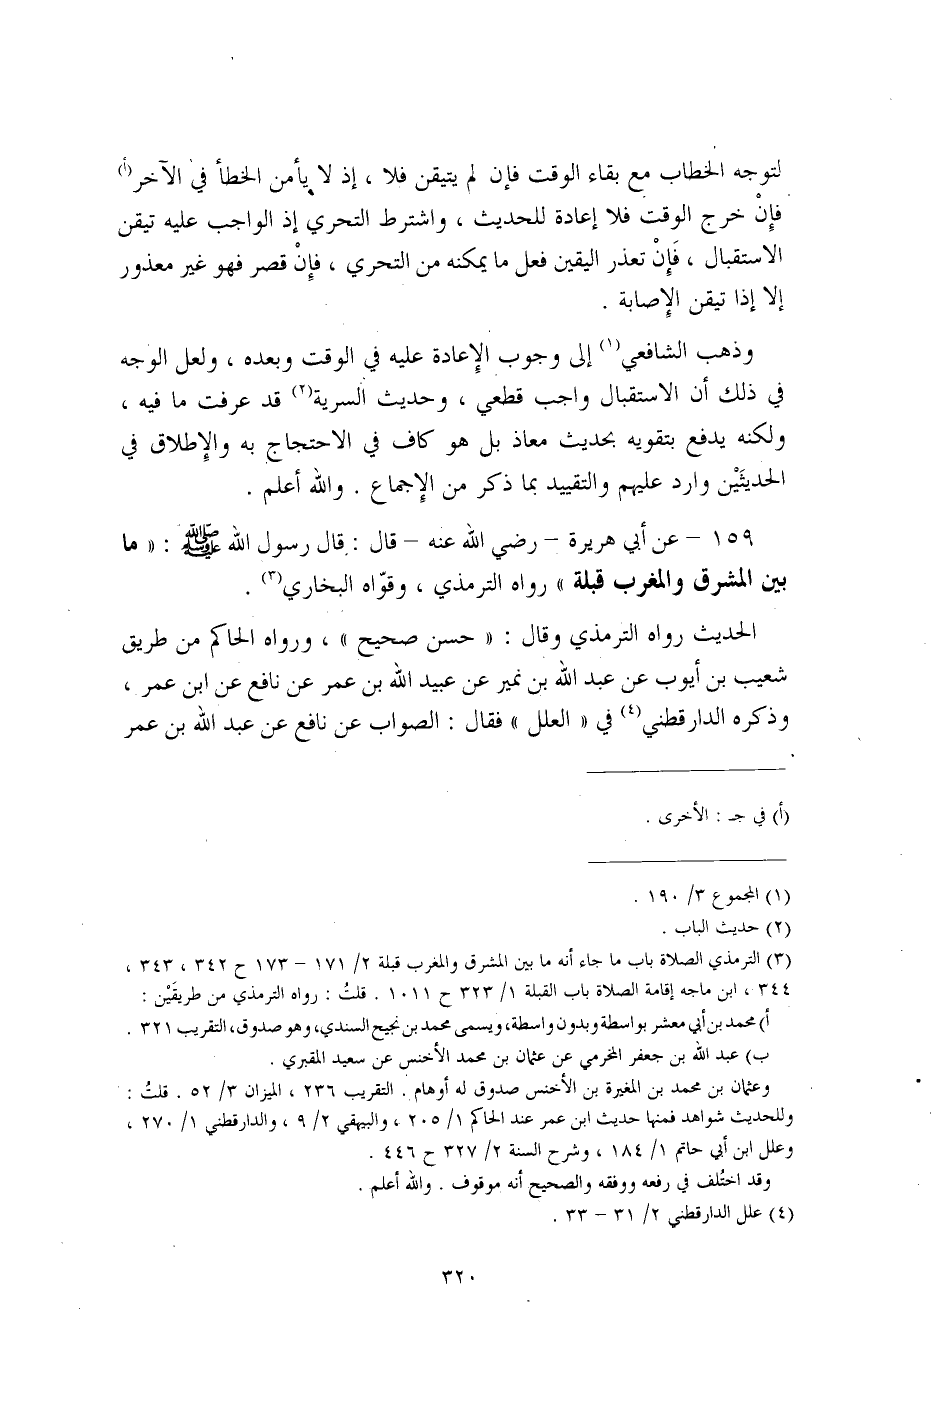 لتوجه الخطاب مع بقاء الوقت فإن لم يتيقن فلا ، إذ لا يأمن الخطأ في الآخر(أ)
فإِنْ خرج الوقت فلا إعادة للحديث ، واشترط التحري إذ الواجب عليه تيقن
الاستقبال ، فَإِنْ تعذر اليقين فعل ما يمكنه من التحري ، فإِنْ قصر فهو غير معذور
إلا إذا تيقن الإِصابة .
وذهب الشافعي(١) إلى وجوب الإِعادة عليه في الوقت وبعده ، ولعل الوجه
في ذلك أن الاستقبال واجب قطعي ، وحديث السرية(٢) قد عرفت ما فيه ،
ولكنه يدفع بتقويه بحديث معاذ بل هو كاف في الاحتجاج به والإِطلاق في
الحديثَيْن وارد عليهم والتقييد بما ذكر من الإِجماع . والله أعلم .
١٥٩ - عن أبي هريرة - رضي الله عنه - قال : قال رسول الله ﷺ : « ما
بين المشرق والمغرب قبلة » رواه الترمذي ، وقوّاه البخاري(٣) .
الحديث رواه الترمذي وقال : « حسن صحيح » ، ورواه الحاكم من طريق
شعيب بن أيوب عن عبد الله بن نمير عن عبيد الله بن عمر عن نافع عن ابن عمر ،
وذكره الدارقطني(٤) في « العلل » فقال : الصواب عن نافع عن عبد الله بن عمر
(أ) في جـ : الأخرى .
(١) المجموع ٣/ ١٩٠ .
(٢) حديث الباب .
(٣) الترمذي الصلاة باب ما جاء أنه ما بين المشرق والمغرب قبلة ٢/ ١٧١ - ١٧٣ ح ٣٤٢ ، ٣٤٣ ،
٣٤٤ ، ابن ماجه إقامة الصلاة باب القبلة ١/ ٣٢٣ ح ١٠١١ . قلتُ : رواه الترمذي من طريقَيْن :
أ) محمد بن أبي معشر بواسطة وبدون واسطة، ويسمى محمد بن نجيح السندي، وهو صدوق، التقريب ٣٢١ .
ب) عبد الله بن جعفر المخرمي عن عثمان بن محمد الأخنس عن سعيد المقبري .
وعثمان بن محمد بن المغيرة بن الأخنس صدوق له أوهام . التقريب ٢٣٦ ، الميزان ٣/ ٥٢ . قلتُ :
وللحديث شواهد فمنها حديث ابن عمر عند الحاكم ١/ ٢٠٥ ، والبيهقي ٢/ ٩ ، والدارقطني ١/ ٢٧٠ ،
وعلل ابن أبي حاتم ١/ ١٨٤ ، وشرح السنة ٢/ ٣٢٧ ح ٤٤٦ .
وقد اختُلف في رفعه ووقفه والصحيح أنه موقوف . والله أعلم .
(٤) علل الدارقطني ٢/ ٣١ - ٣٣ .
٣٢٠